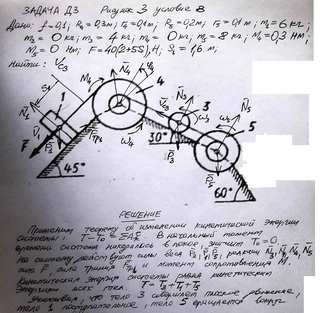 ЗАДАЧА Д3 Рисунок 3 условие 8
Дано: f=0,1; R₄=0,3м; r₄=0,1м; R₅=0,2м; r₅=0,1м; m₁=6кг;
m₂=0кг; m₃=4кг; m₄=0кг; m₅=8кг; M₄=0,3 Нм;
M₅=0 Нм; F=40(2+5S),Н; S₁=1,6м.
Найти:
S₁
N̄₁
1
F
45°
4
3
30°
N̄₃
P̄₃
ω₃
5
N̄₅
P̄₅
60°
РЕШЕНИЕ
Применим теорему об изменении кинетической энергии
системы: T-T₀=
В начальный момент
времени система находилась в покое, значит T₀=0.
На систему действуют силы веса реакции
сила F, сила трения и момент сопротивления M.
Кинетическая энергия системы равна кинетическим
энергиям всех тел T=T₁+T₃+T₅
Учитывая, что тело 3 совершает плоское движение,
тело 1 поступательное, тело 5 вращается вокруг